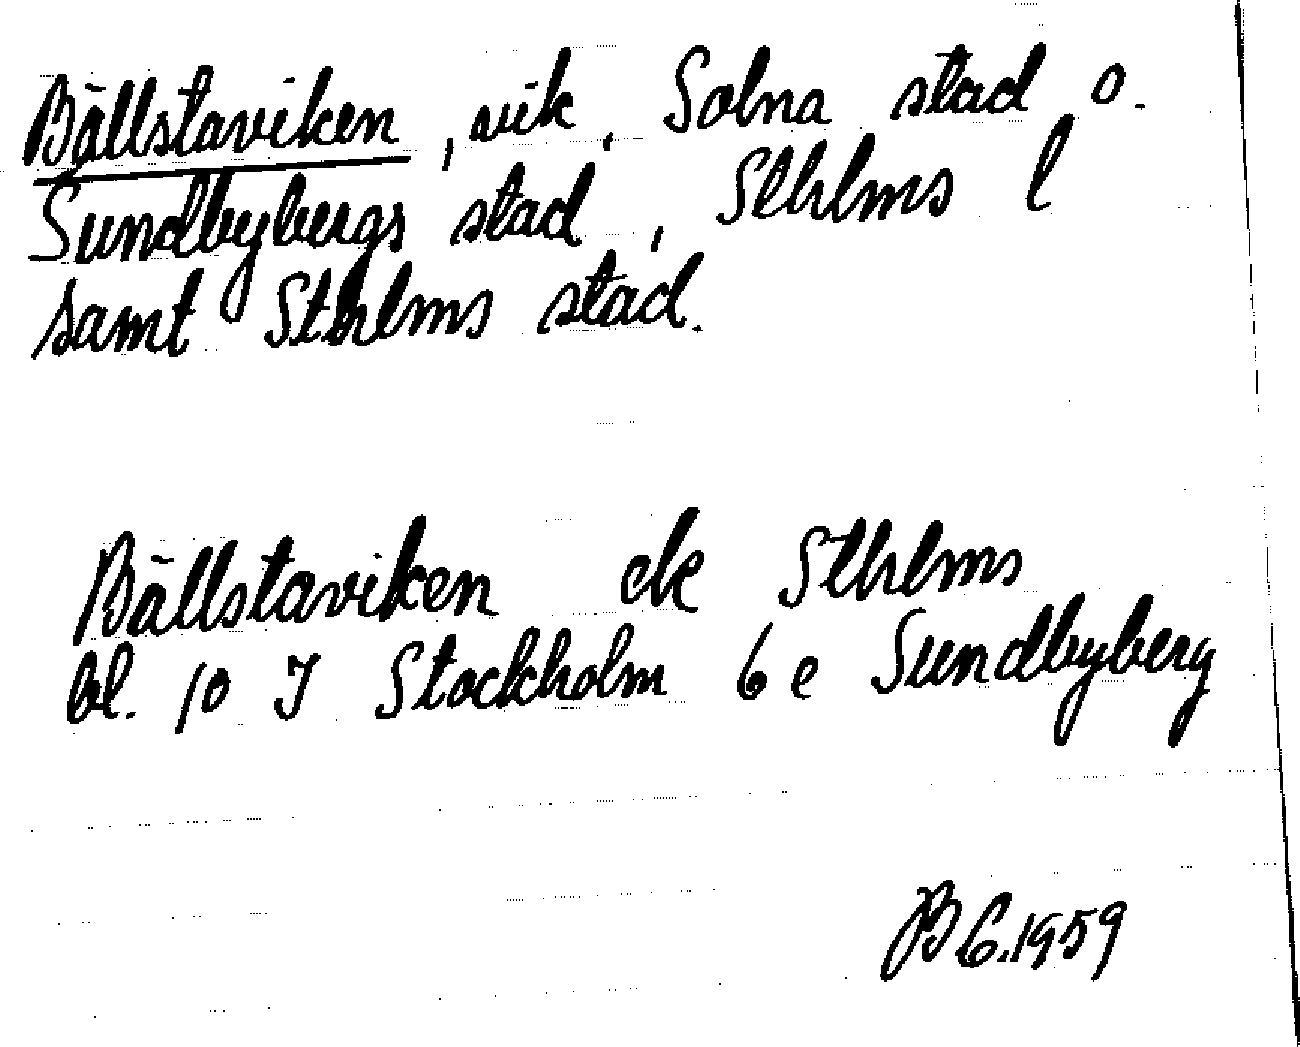 Bällstaviken, vik, Solna stad o.
Sundbybergs stad, Sthlms l
samt Sthlms stad.
Bällstaviken ek Sthlms
bl. 10 I Stockholm 6 e Sundbyberg
B G. 1959